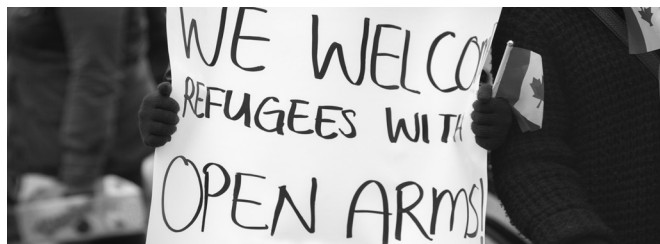 WE WELCO
REFUGEES WITH
OPEN ARMS!